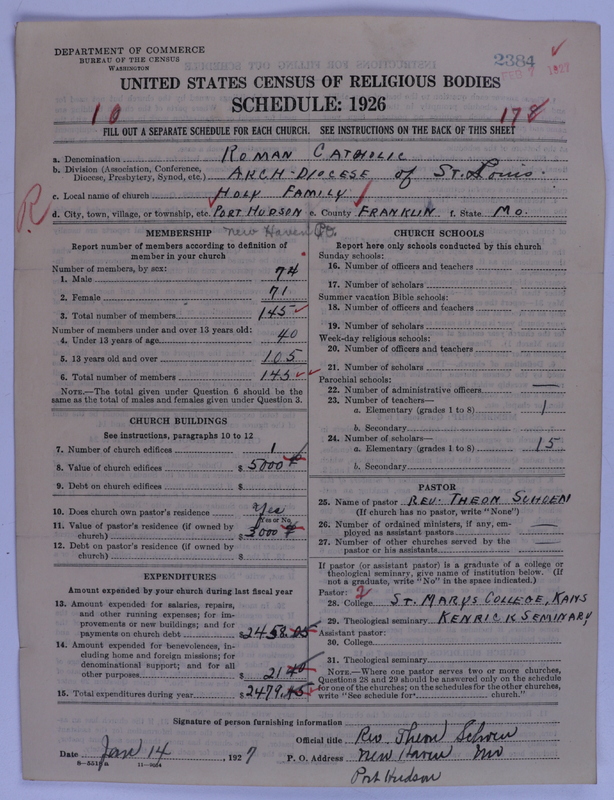 DEPARTMENT OF COMMERCE
BUREAU OF THE CENSUS
WASHINGTON
2384
FEB 7 1927
UNITED STATES CENSUS OF RELIGIOUS BODIES
SCHEDULE: 1926
10
178
FILL OUT A SEPARATE SCHEDULE FOR EACH CHURCH. SEE INSTRUCTIONS ON THE BACK OF THIS SHEET
a. Denomination ROMAN CATHOLIC
b. Division (Association, Conference, Diocese, Presbytery, Synod, etc.) ARCH-DIOCESE of ST. Louis.
c. Local name of church HOLY FAMILY
R
d. City, town, village, or township, etc. PORT HUDSON e. County FRANKLIN f. State MO.
New Haven P.O.
MEMBERSHIP
Report number of members according to definition of member in your church
Number of members, by sex:
1. Male 74
2. Female 71
3. Total number of members 145
Number of members under and over 13 years old:
4. Under 13 years of age 40
5. 13 years old and over 105
6. Total number of members 145
NOTE.—The total given under Question 6 should be the same as the total of males and females given under Question 3.
CHURCH BUILDINGS
See instructions, paragraphs 10 to 12
7. Number of church edifices 1
8. Value of church edifices $5000
9. Debt on church edifices $
10. Does church own pastor's residence Yes
(Yes or No)
11. Value of pastor's residence (if owned by church) $3000
12. Debt on pastor's residence (if owned by church) $
EXPENDITURES
Amount expended by your church during last fiscal year
13. Amount expended for salaries, repairs, and other running expenses; for improvements or new buildings; and for payments on church debt $2458.05
14. Amount expended for benevolences, including home and foreign missions; for denominational support; and for all other purposes $21.40
15. Total expenditures during year $2479.45
CHURCH SCHOOLS
Report here only schools conducted by this church
Sunday schools:
16. Number of officers and teachers
17. Number of scholars
Summer vacation Bible schools:
18. Number of officers and teachers
19. Number of scholars
Week-day religious schools:
20. Number of officers and teachers
21. Number of scholars
Parochial schools:
22. Number of administrative officers —
23. Number of teachers—
a. Elementary (grades 1 to 8) 1
b. Secondary
24. Number of scholars—
a. Elementary (grades 1 to 8) 15
b. Secondary
PASTOR
25. Name of pastor REV. THEON SCHOEN
(If church has no pastor, write "None")
26. Number of ordained ministers, if any, employed as assistant pastors —
27. Number of other churches served by the pastor or his assistants —
If pastor (or assistant pastor) is a graduate of a college or theological seminary, give name of institution below. (If not a graduate, write "No" in the space indicated.)
Pastor: 2
28. College ST. MARYS COLLEGE, KANS
29. Theological seminary KENRICK SEMINARY
Assistant pastor:
30. College
31. Theological seminary
NOTE.—Where one pastor serves two or more churches, Questions 28 and 29 should be answered only on the schedule for one of the churches; on the schedules for the other churches, write "See schedule for church."
Signature of person furnishing information
Official title Rev Theon Schoen
Date Jan 14, 1927 P. O. Address New Haven Mo
Port Hudson